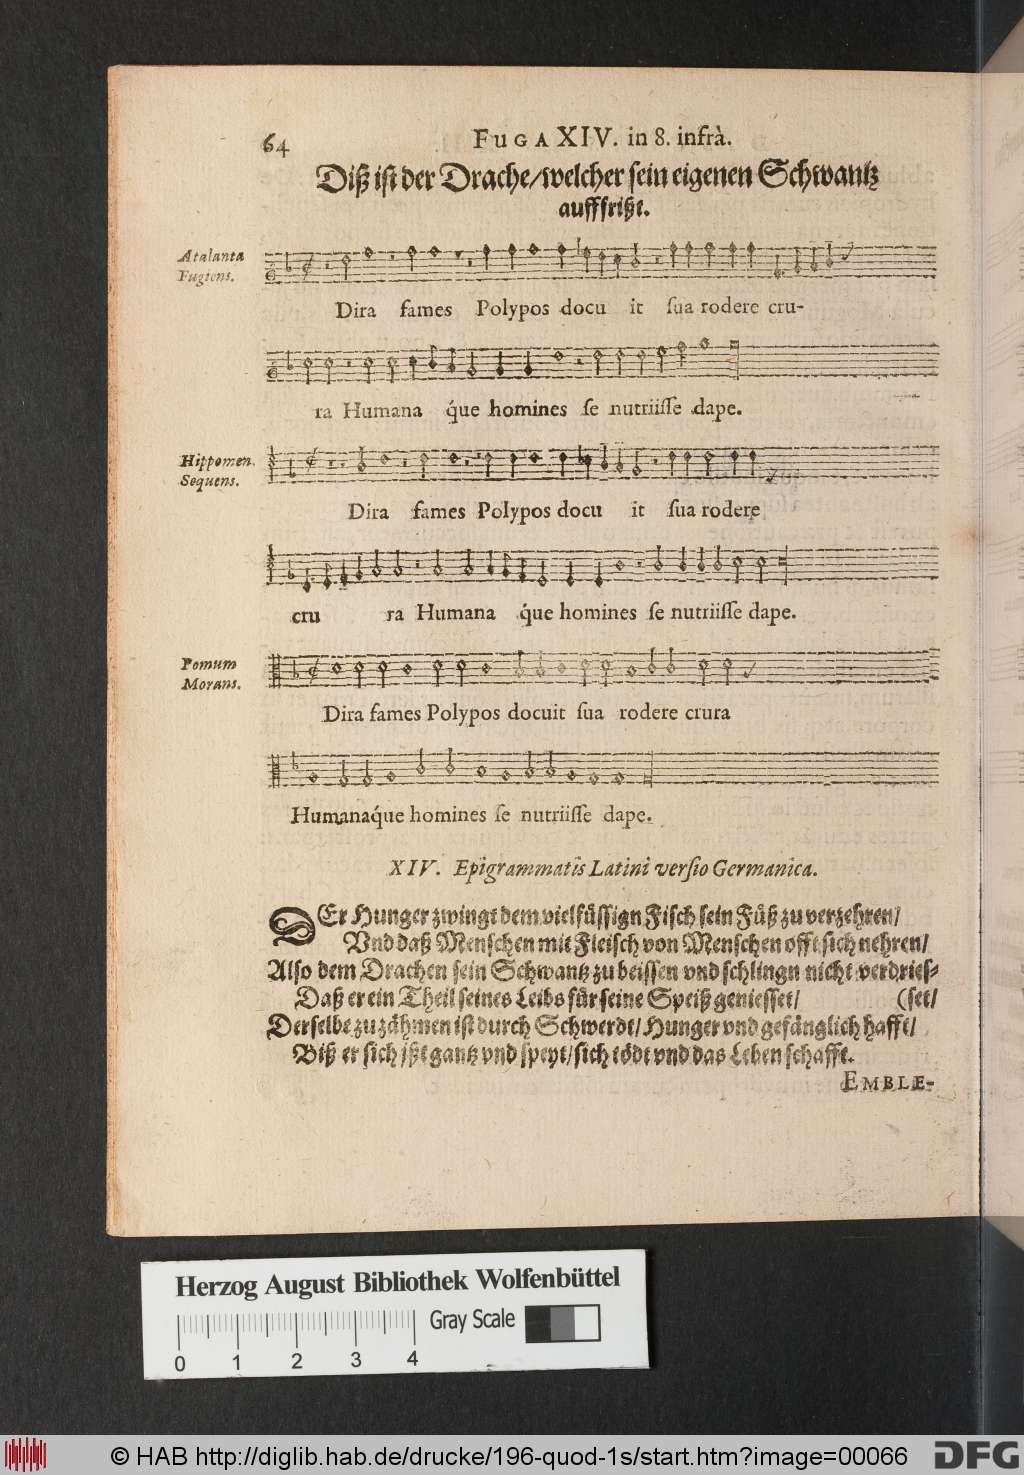 64
FUGA XIV. in 8. infrà.
Diß ist der Drache/welcher sein eigenen Schwantz
aufffrißt.
Atalanta
Fugiens.
Dira fames Polypos docu it sua rodere cru-
ra Humana q́ue homines se nutriisse dape.
Hippomen.
Sequens.
Dira fames Polypos docu it sua rodere
cru ra Humana q́ue homines se nutriisse dape.
Pomum
Morans.
Dira fames Polypos docuit sua rodere crura
Humanaq́ue homines se nutriisse dape.
XIV. Epigrammatis Latini versio Germanica.
DEr Hunger zwingt dem vielfüssign Fisch sein Füß zu verzehren/
Vnd daß Menschen mit Fleisch von Menschen offt sich nehren/
Also dem Drachen sein Schwantz zu beissen vnd schlingn nicht verdries-
Daß er ein Theil seines Leibs für seine Speiß geniesset/ (set/
Derselbe zu zähmen ist durch Schwerdt/Hunger vnd gefänglich hafft/
Biß er sich jßt gantz vnd speyt/sich tödt vnd das Leben schafft.
EMBLE-
Herzog August Bibliothek Wolfenbüttel
Gray Scale
0 1 2 3 4
© HAB http://diglib.hab.de/drucke/196-quod-1s/start.htm?image=00066
DFG